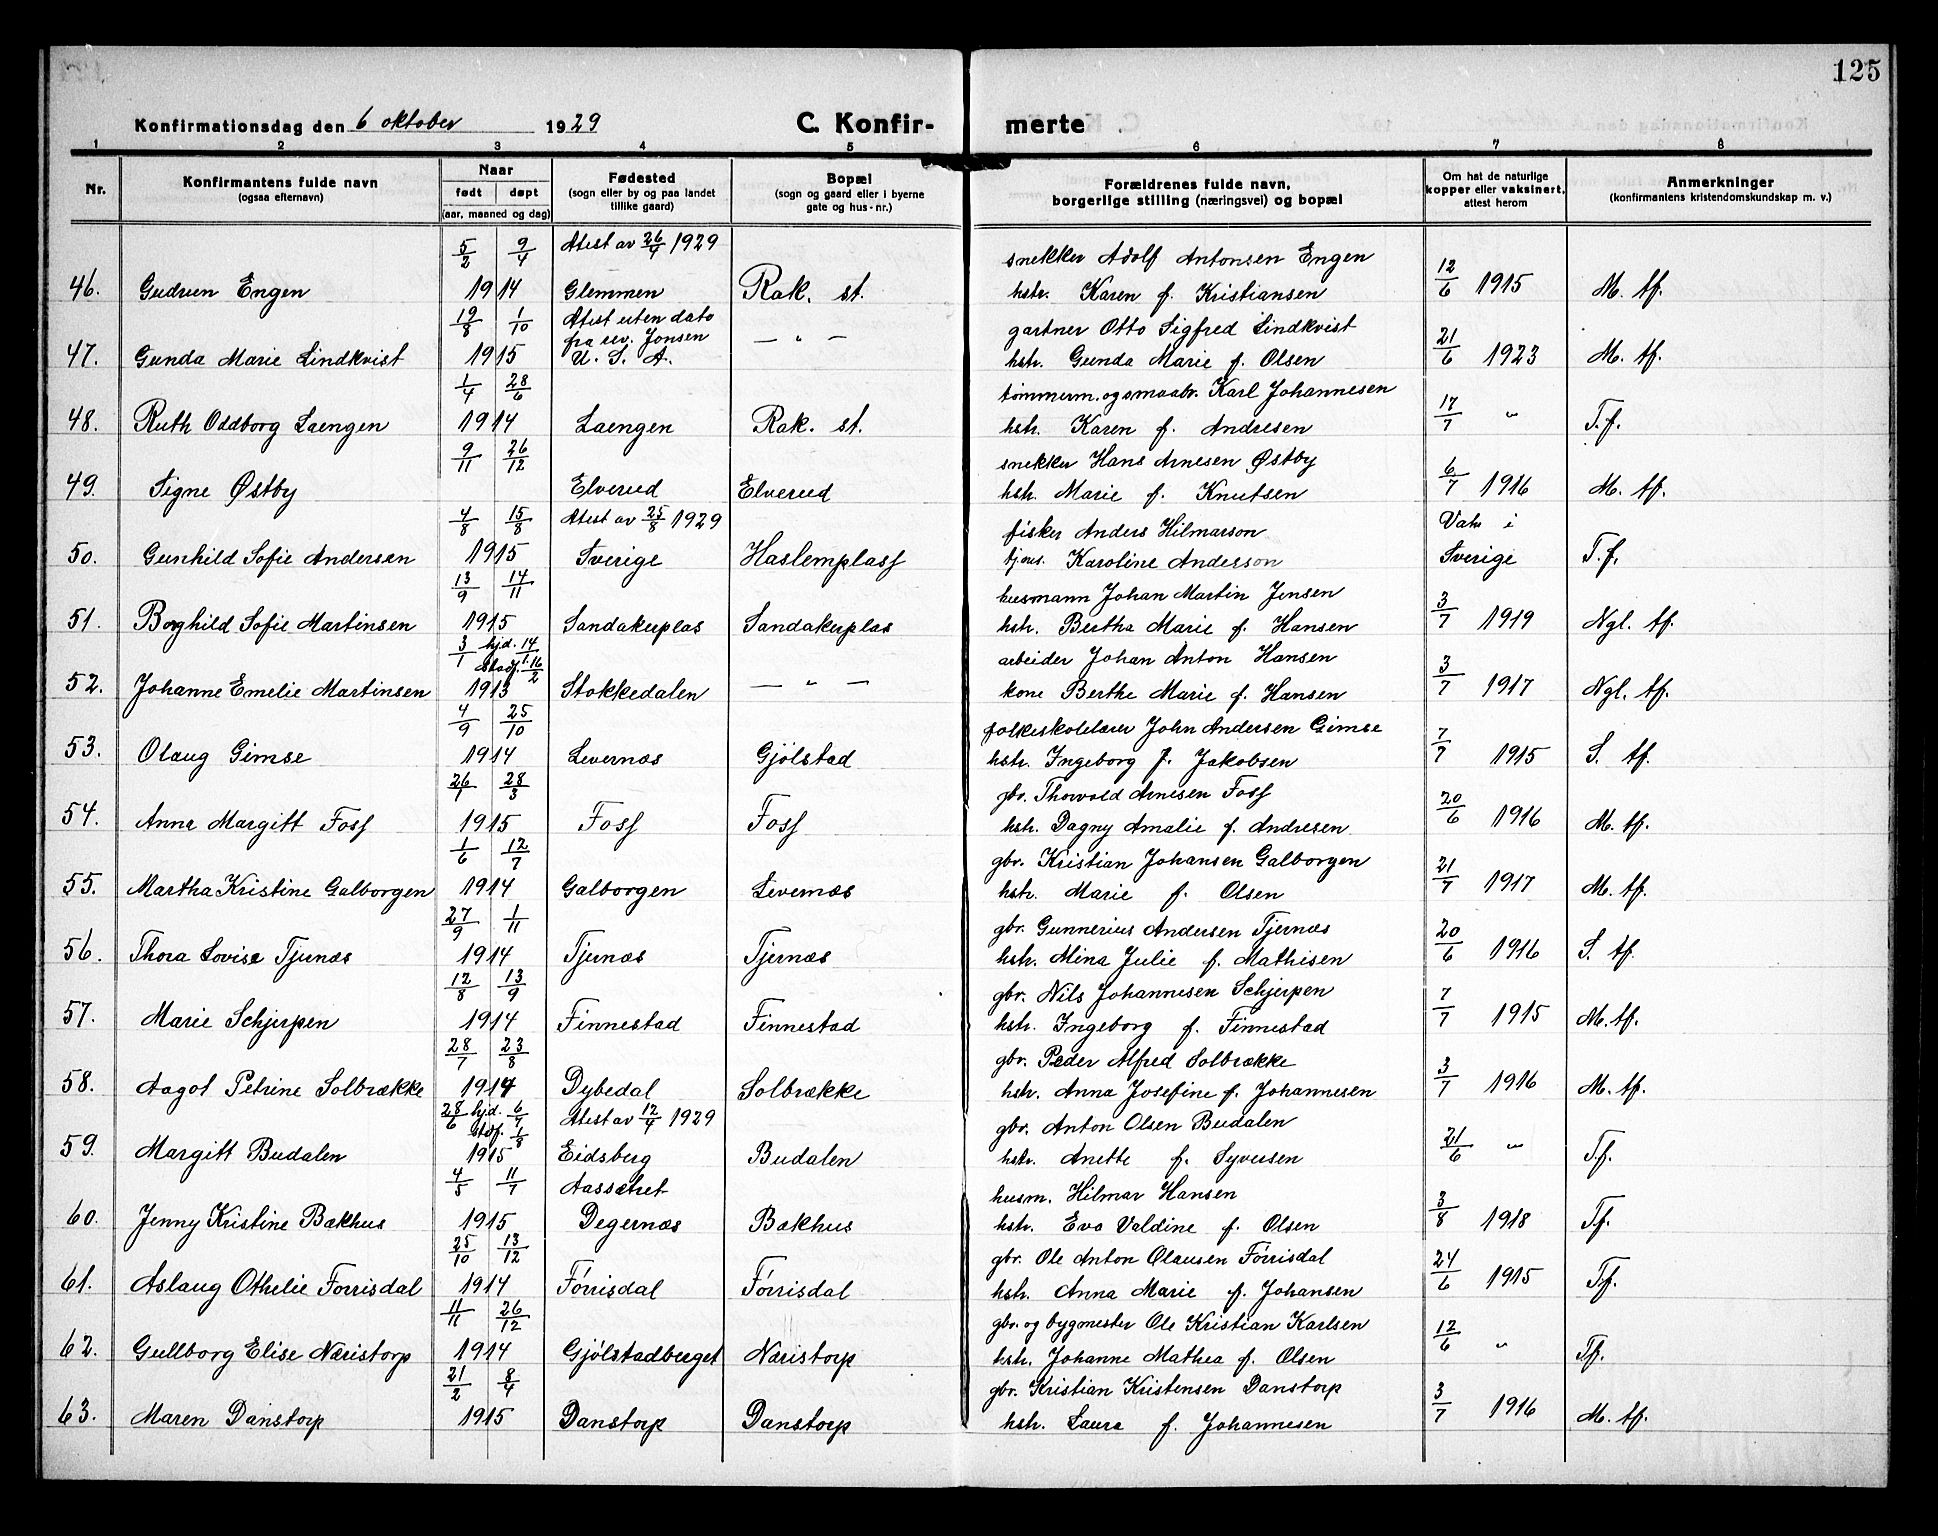 125
Konfirmationsdag den 6 oktober 1929 C. Konfirmerte
1 2 3 4 5 6 7 8
Nr. Konfirmantens fulde navn (ogsaa efternavn) Naar født døpt (aar, maaned og dag) Fødested (sogn eller by og paa landet tillike gaard) Bopæl (sogn og gaard eller i byerne gate og hus-nr.) Forældrenes fulde navn, borgerlige stilling (næringsvei) og bopæl Om hat de naturlige kopper eller vaksinert, attest herom Anmerkninger (konfirmantens kristendomskundskap m. v.)
5/2 9/4 Atest av 26/4 1929 snekker Adolf Antonsen Engen
46. Gudrun Engen 1914 Glemmen Rak. st. hstr. Karen f. Kristiansen 12/6 1915 M. tf.
19/8 1/10 Atest uten dato fra rev. Jonsen gartner Otto Sigfred Lindkvist
47. Gunda Marie Lindkvist 1915 U. S. A. — " — hstr. Gunda Marie f. Olsen 21/6 1923 M. tf.
1/4 28/6 tömmerm. og smaabr. Karl Johannesen
48. Ruth Oddborg Laengen 1914 Laengen Rak. st. hstr. Karen f. Andresen 17/7 " T.f.
9/11 26/12 snekker Hans Arnesen Østby
49. Signe Østby Elverud Elverud hstr. Marie f. Knutsen 6/7 1916 M. tf.
4/8 15/8 Atest av 25/8 1929 fisker Anders Hilmarson Vaks i
50. Gunhild Sofie Andersen 1915 Sverige Haslemplass Karoline Anderson Sverige T.f.
13/9 14/11 husmann Johan Martin Jensen
51. Borghild Sofie Martinsen 1915 Sandakerplas Sandakerplas hstr. Bertha Marie f. Hansen 3/7 1919 Ngl. tf.
3/1 hjd. 14/1 stadf. 16/2 arbeider Johan Anton Hansen
52. Johanne Emelie Martinsen 1913 Stokkedalen — " — kone Berthe Marie f. Hansen 3/7 1917 Ngl. tf.
4/9 25/10 folkeskolelærer John Andersen Gimse
53. Olaug Gimse 1914 Levernæs Gjölstad hstr. Ingeborg f. Jakobsen 7/7 1915 S. tf.
26/1 28/3 gbr. Thorvold Arnesen Foss
54. Anna Margitt Foss 1915 Foss Foss hstr. Dagny Amalie f. Andresen 20/6 1916 M. tf.
1/6 12/7 gbr. Kristian Johansen Galborgen
55. Martha Kristine Galborgen 1914 Galborgen Livernæs hstr. Marie f. Olsen 21/7 1917 M. tf.
27/9 1/11 gbr. Gunnerius Andersen Tjernæs
56. Thora Lovise Tjernæs 1914 Tjernæs Tjernæs hstr. Mina Julie f. Mathisen 20/6 1916 S. tf.
12/8 13/9 gbr. Nils Johannesen Schjerpen
57. Marie Schjerpen 1914 Finnestad Finnestad hstr. Ingeborg f. Finnestad 7/7 1915 M. tf.
28/7 23/8 gbr. Peder Alfred Solbrække
58. Aagot Petrine Solbrække 1914 Dybedal Solbrække hstr. Anna Josefine f. Johannesen 3/7 1916 M. tf.
28/6 hjd. 6/7 stdf. 1/8 Atest av 12/4 1929 gbr. Anton Olsen Budalen
59. Margitt Budalen 1915 Eidsberg Budalen hstr. Anette f. Syversen 21/6 " T.f.
4/5 11/7 Aassætret husm. Hilmar Hansen
60. Jenny Kristine Bakhus 1915 Degernæs Bakhus hstr. Eva Valdine f. Olsen 3/8 1918 T.f.
25/10 13/12 gbr. Ole Anton Olausen Förrisdal
61. Aslaug Othelie Forrisdal 1914 Förrisdal Förrisdal hstr. Anna Marie f. Johansen 24/6 1915 T.f.
11/11 26/12 gbr. og bygmester Ole Kristian Karlsen
62. Gullborg Elise Næristorp 1914 Gjölstadberget Næristorp hstr. Johanne Mathea f. Olsen 12/6 " T.f.
21/2 8/4 gbr. Kristian Kristensen Danstorp
63. Maren Danstorp 1915 Danstorp Danstorp hstr. Laura f. Johannesen 3/7 1916 M. tf.